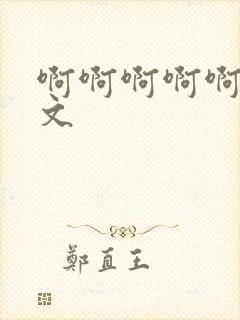 啊啊啊啊啊
文
鄭直王